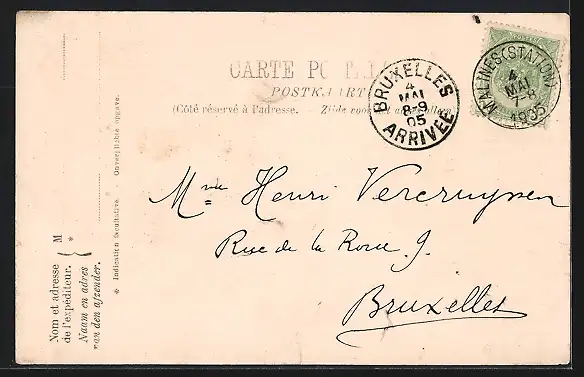 CARTE POSTALE
POSTKAART
(Côté réservé à l'adresse. — Zijde voor het adres alleen)
BRUXELLES
4
MAI
8-9
05
ARRIVÉE
MALINES (STATION)
4
MAI
7-8
1905
Mme Henri Vercruyssen
Rue de la Roue 9.
Bruxelles
Nom et adresse
de l'expéditeur.
Naam en adres
van den afzender.
{ M
*
* Indication facultative. - Onverplichte opgave.